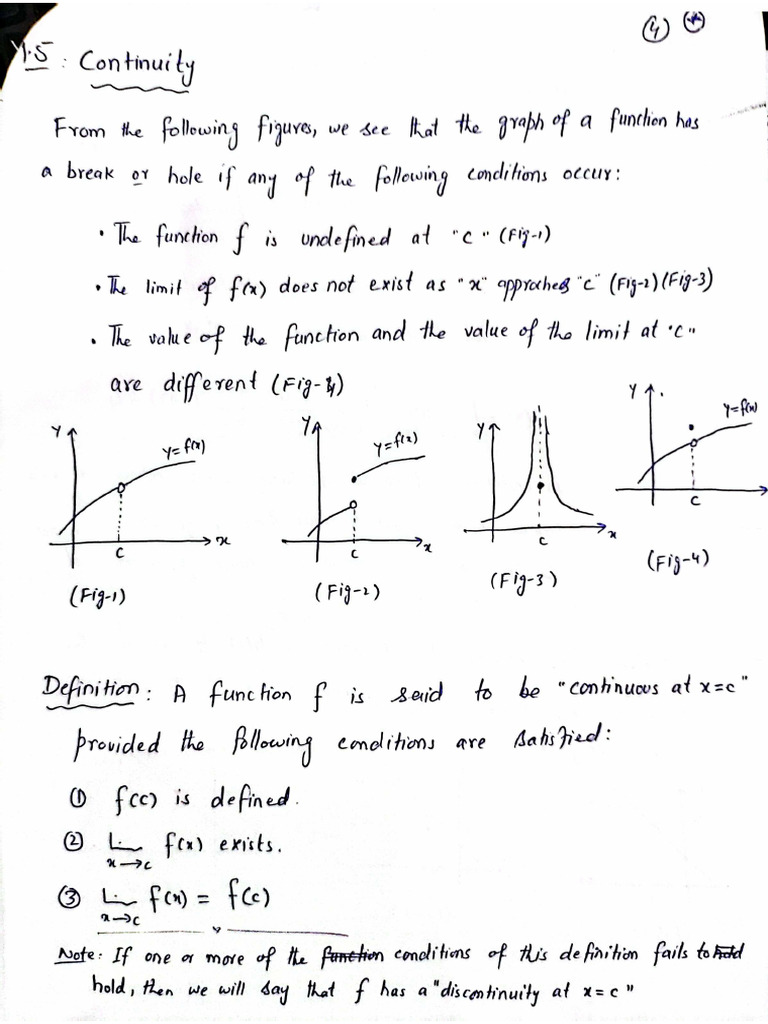 ④ *
1.5 : Continuity
From the following figures, we see that the graph of a function has
a break or hole if any of the following conditions occur:
• The function f is undefined at "c" (Fig-1)
• The limit of f(x) does not exist as "x" approches "c" (Fig-2)(Fig-3)
• The value of the function and the value of the limit at "c"
are different (Fig-4)
y y=f(x) c x
(Fig-1)
y y=f(x) c x
(Fig-2)
y c x
(Fig-3)
y y=f(x) c
(Fig-4)
Definition: A function f is said to be "continuous at x=c"
provided the following conditions are satisfied:
① f(c) is defined.
② Lim f(x) exists.
x→c
③ Lim f(x) = f(c)
x→c
Note: If one or more of the function conditions of this definition fails to hold
hold, then we will say that f has a "discontinuity at x=c"